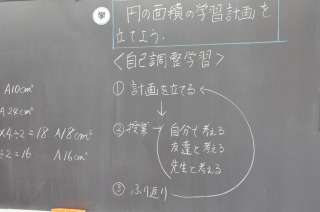 学 円の面積の学習計画を
立てよう.
<自己調整学習>
① 計画を立てる
② 授業 自分で考える
友達と考える
先生と考える
③ ふり返り
A10cm²
A24cm²
×4÷2=18 A18cm²
÷2=16 A16cm²